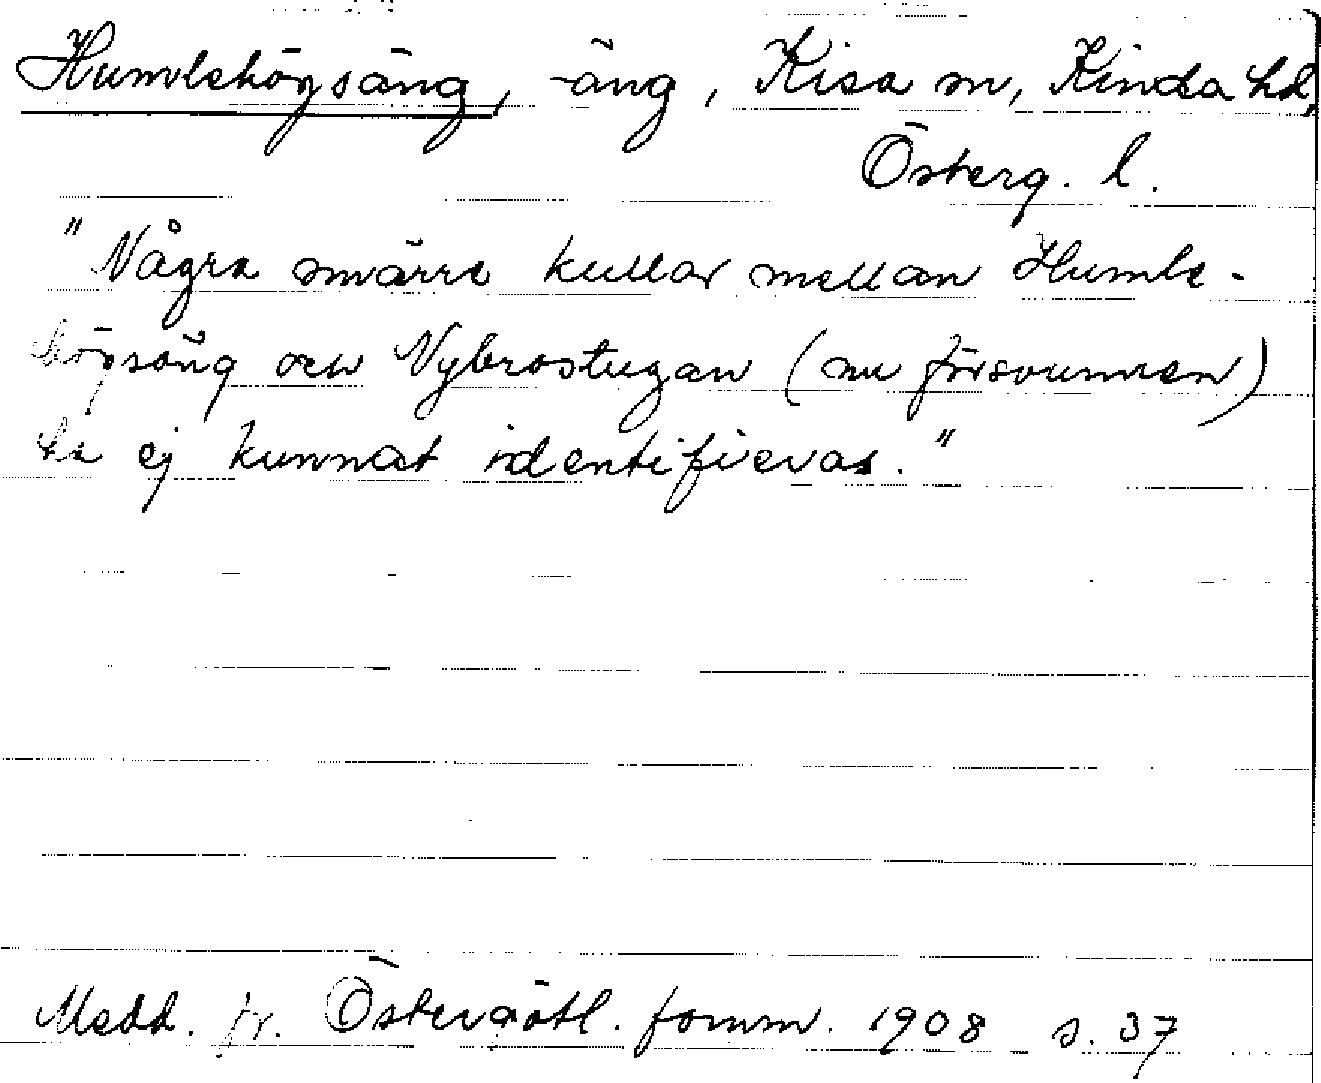 Humlehögsäng, -äng, Kisa sn, Kinda hd,
Österg. l.
"Några smärre kullar mellan Humle-
högsäng och Nybrostugan (nu försvunnen)
ha ej kunnat identifieras."
Medd. fr. Östergötl. fornm. 1908 s. 37